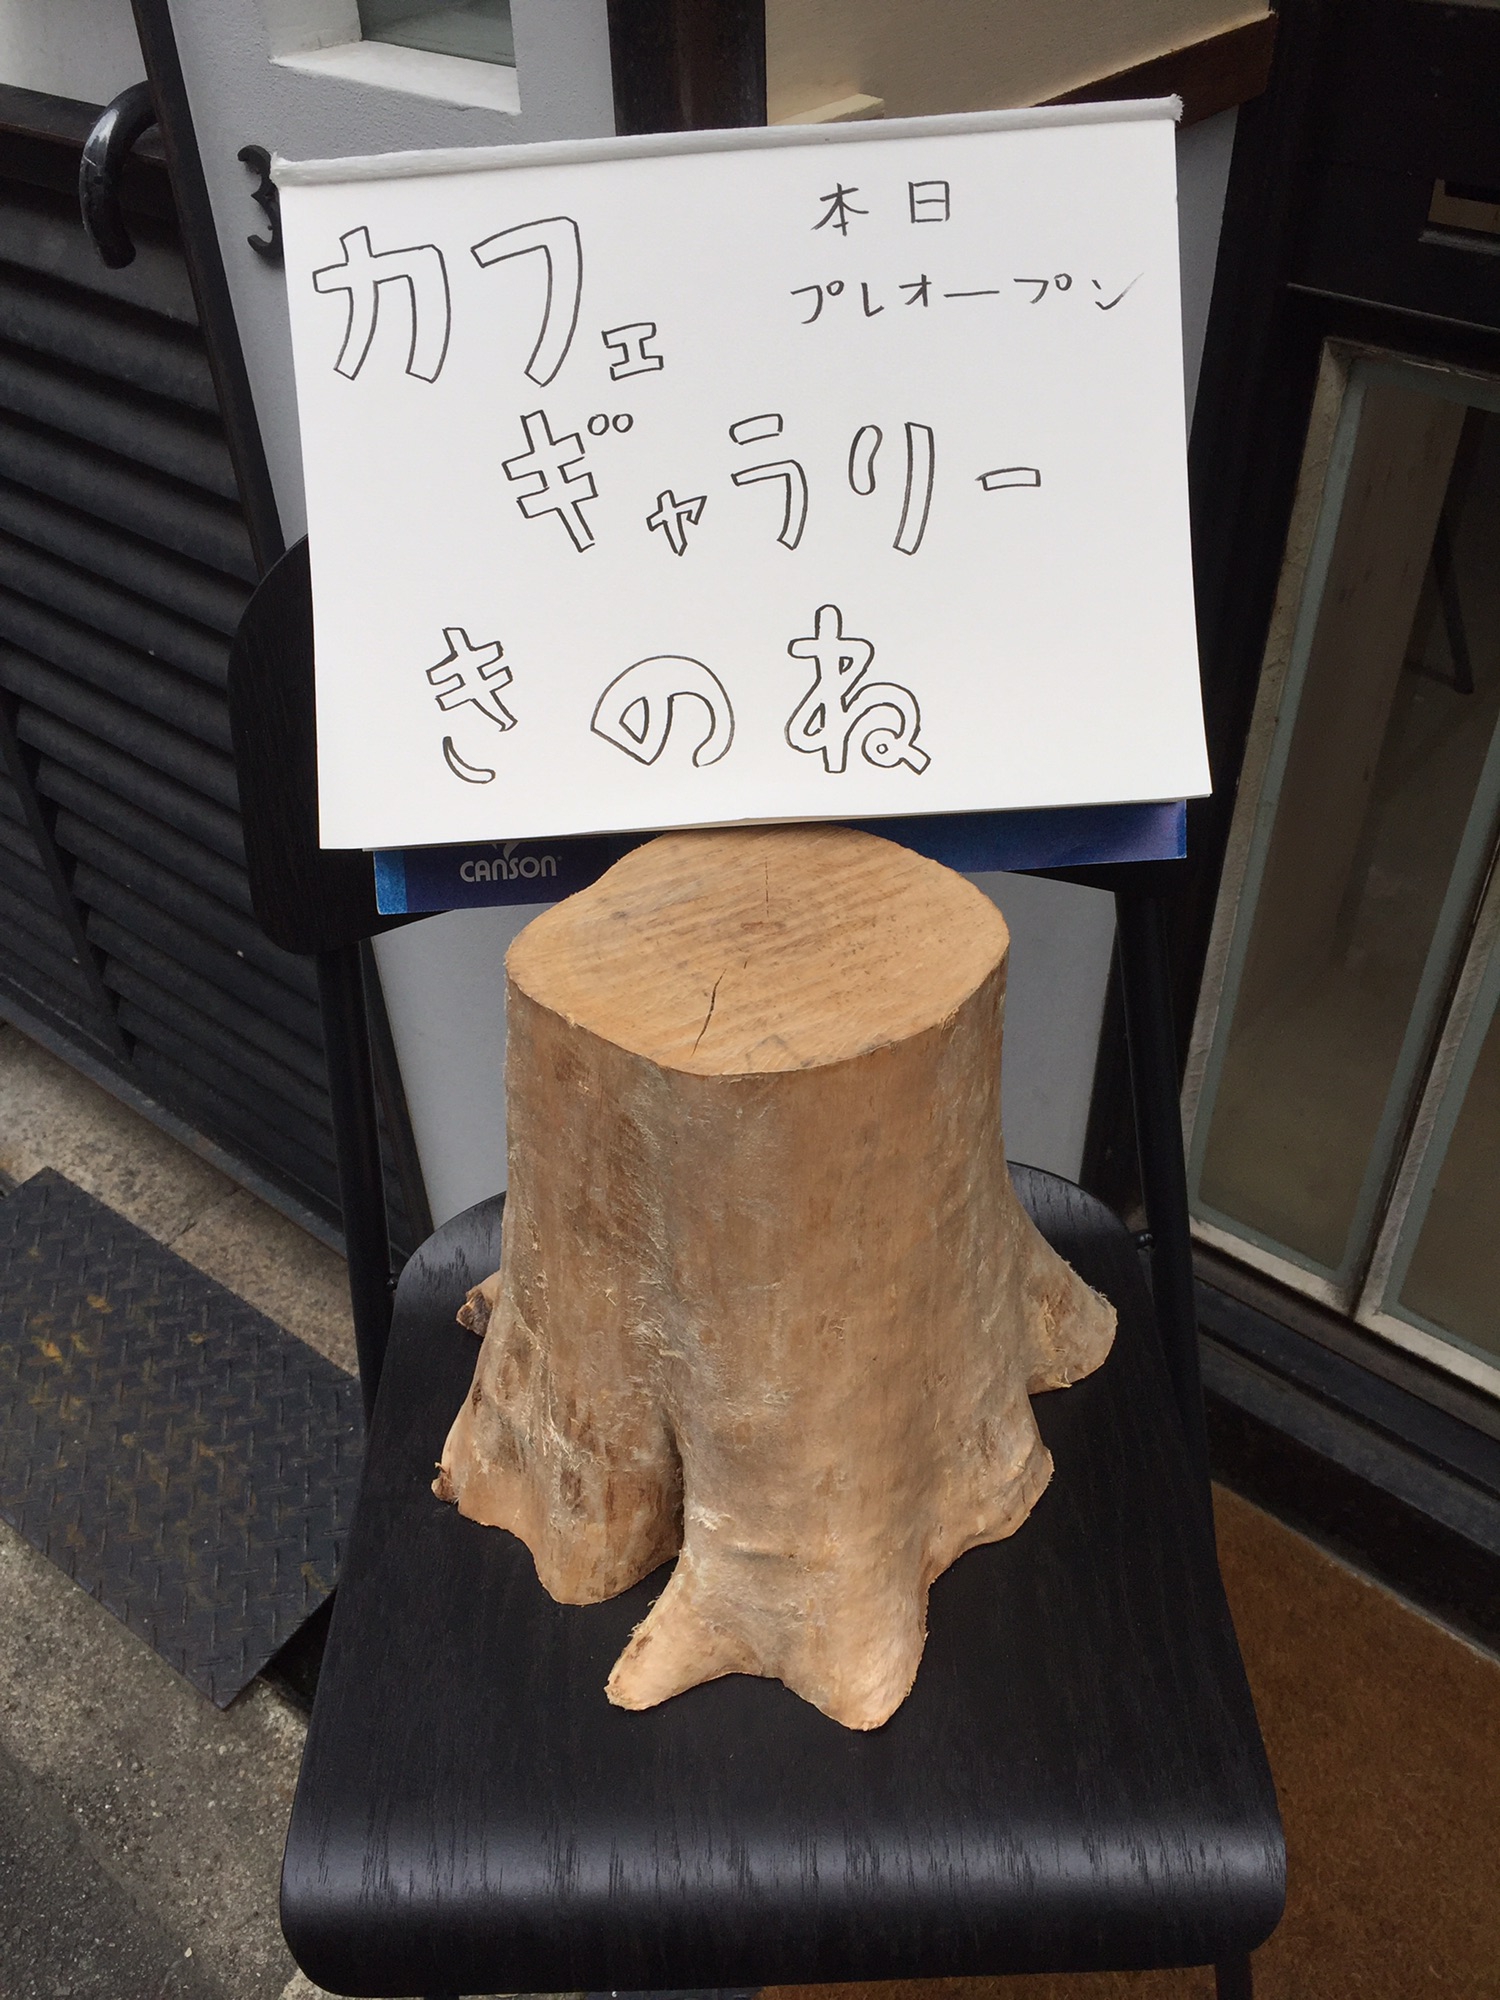 本日
プレオープン
カフェ
ギャラリー
きのね
CANSON
3